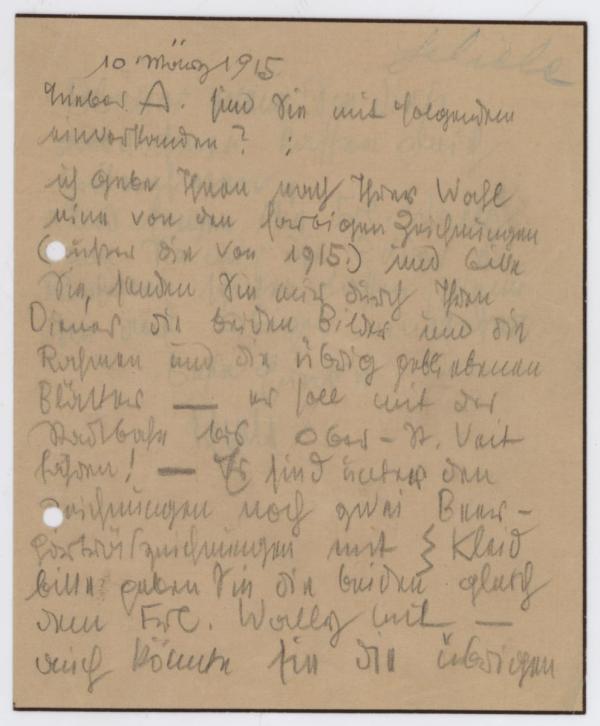 Schiele
10 März 1915
Lieber A. sind Sie mit folgendem
einverstanden? :
ich gebe Ihnen nach Ihrer Wahl
eine von den farbigen Zeichnungen
(außer die von 1915.) und bitte
Sie, senden Sie mir durch Ihren
Diener die beiden Bilder und die
Rahmen und die übrig gebliebenen
Blätter — er soll mit der
Stadtbahn bis Ober-St. Veit
fahren! — Es sind unter den
Zeichnungen noch zwei Beer-
porträtzeichnungen mit Kleid
bitte geben Sie die beiden gleich
dem Frl. Wally mit —
auch könnte sie die übrigen